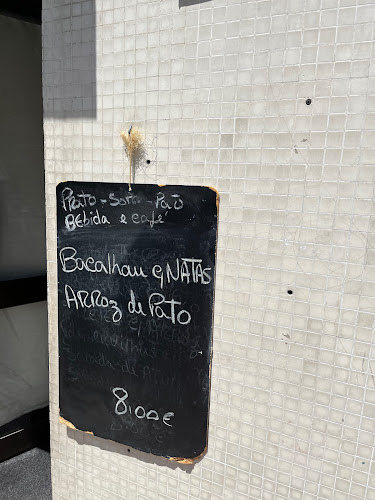 Prato - Sopa - Pão
Bebida e café
Bacalhau c/ NATAS
ARROZ de Pato
8,00€